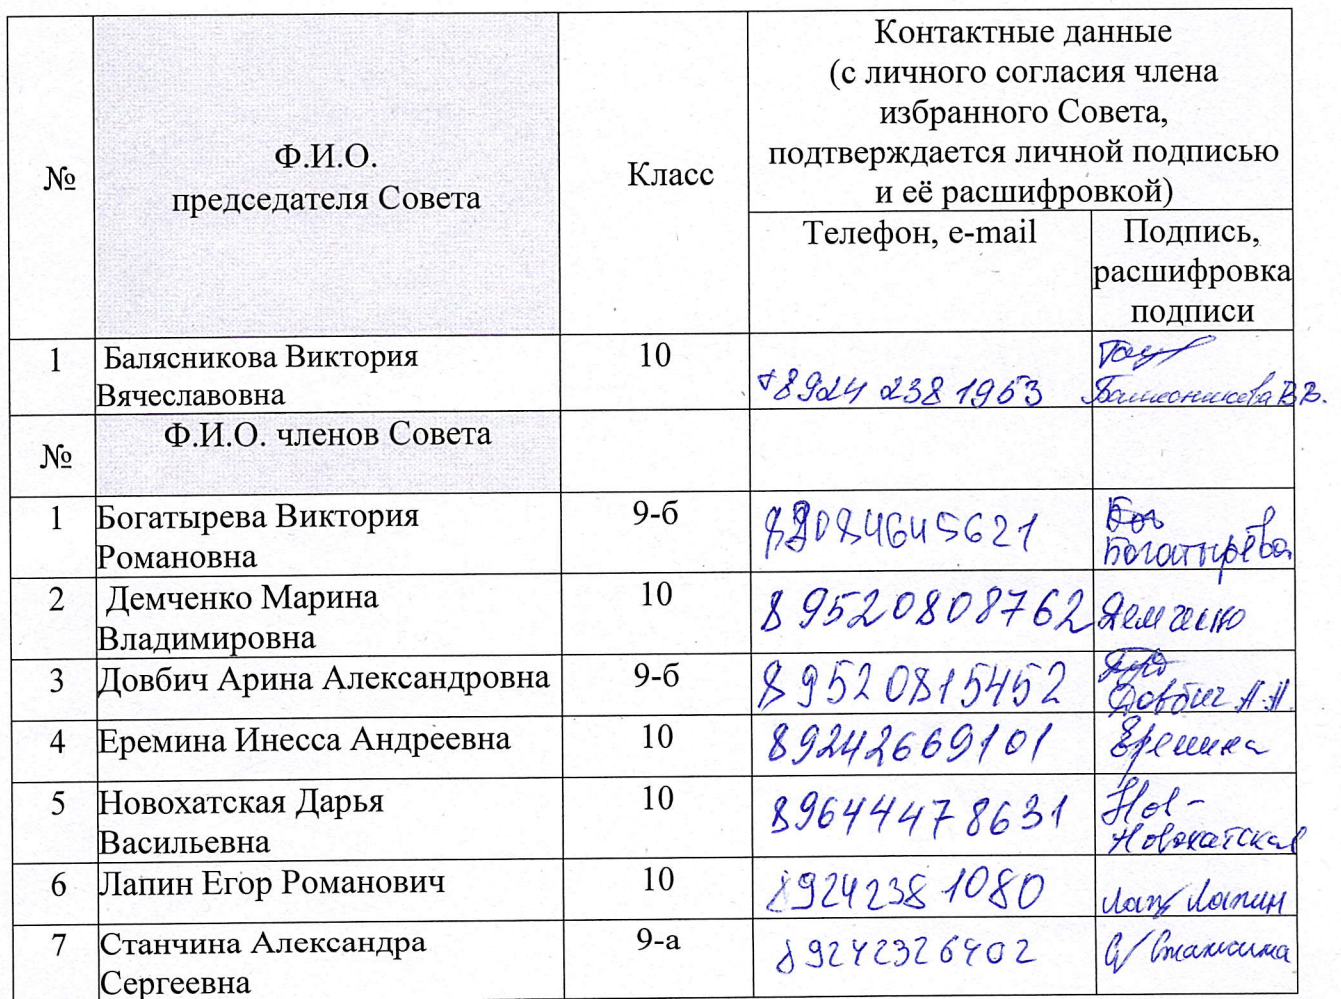 №
Ф.И.О.
председателя Совета
Класс
Контактные данные
(с личного согласия члена
избранного Совета,
подтверждается личной подписью
и её расшифровкой)
Телефон, e-mail
Подпись,
расшифровка
подписи
1
Балясникова Виктория
Вячеславовна
10
+8924 238 1953
Балясникова В.В.
№
Ф.И.О. членов Совета
1
Богатырева Виктория
Романовна
9-б
89084645621
Бог
Богатырёва
2
Демченко Марина
Владимировна
10
89520808762
Демченко
3
Довбич Арина Александровна
9-б
89520815452
Довбич А.А.
4
Еремина Инесса Андреевна
10
89242669101
Еремина
5
Новохатская Дарья
Васильевна
10
89644478631
Нов-
Новохатская
6
Лапин Егор Романович
10
89242381080
Лап Лапин
7
Станчина Александра
Сергеевна
9-а
89242326402
С/ Станчина